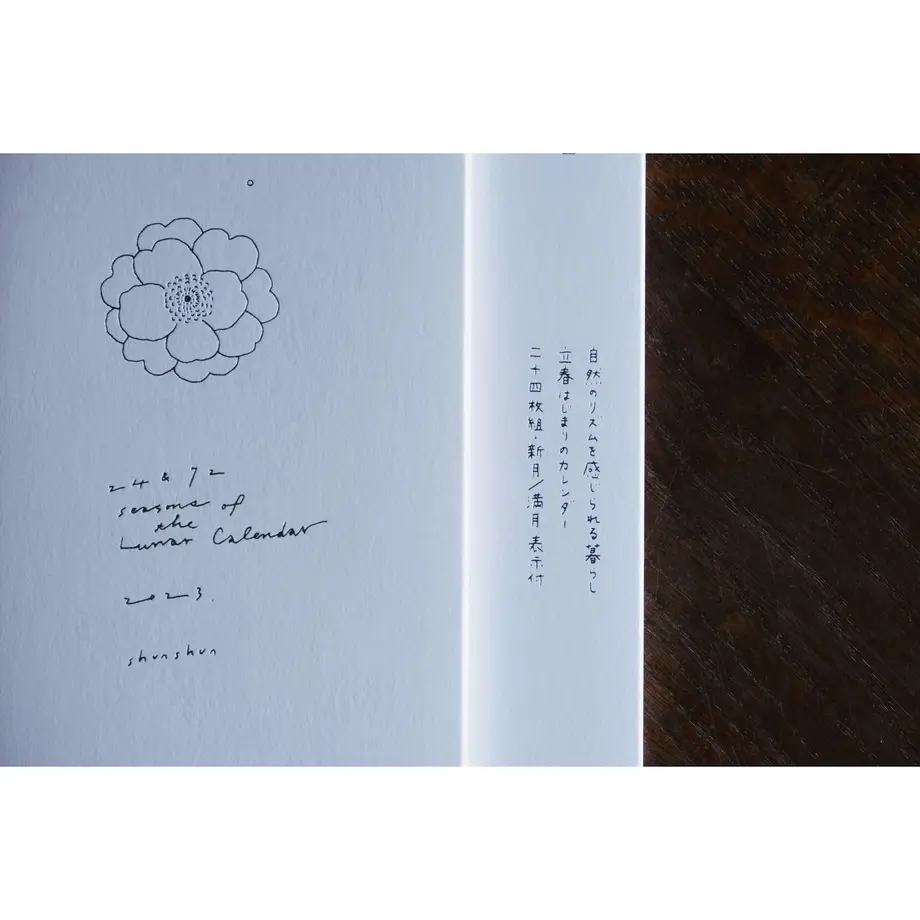 24 & 72
seasons of
the
Lunar Calendar
2023.
shunshun
自然のリズムを感じられる暮らし
立春はじまりのカレンダー
二十四枚組・新月/満月表示付